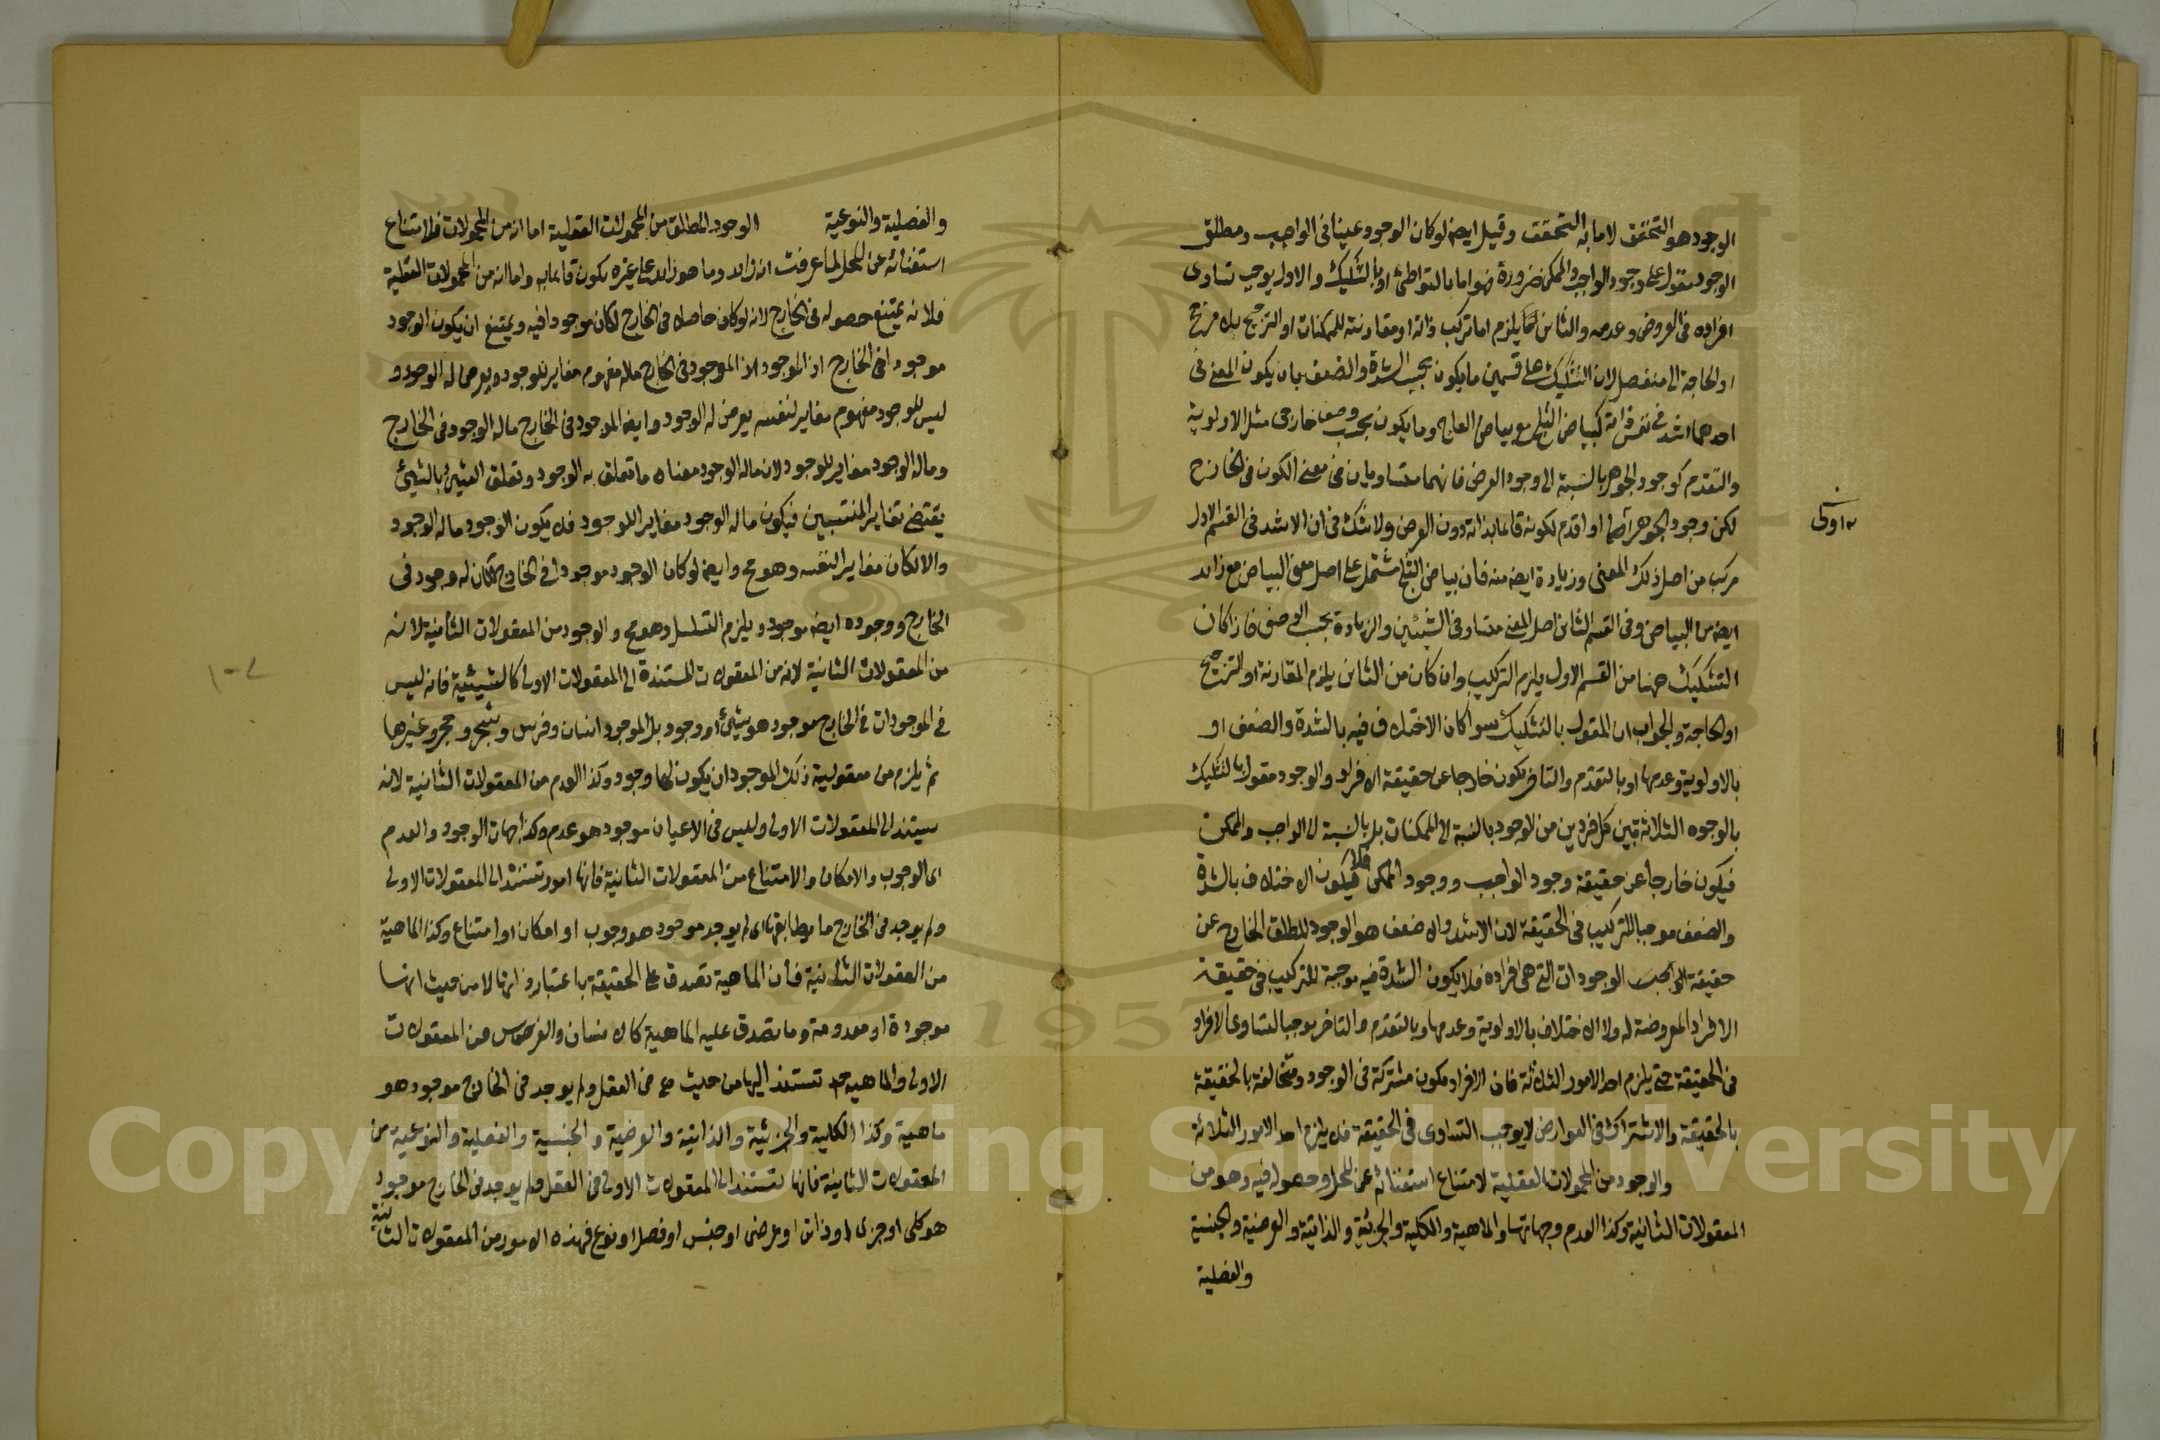 الوجود هو التحقق لا ما به التحقق وقيل ايضه لو كان الوجود عينا فى الواجب ومطلق
الوجود مقول على وجود الواجب والممكن ضرورة فهو اما بالتواطئ او بالتشكيك والاول يوجب تساوى
افراده فى العروض وعدمه والثانى يلزم اما تركب ذاته او مقارنته للممكنات او الترجيح بلا مرجح
او الحاجة الى منفصل لان التشكيك على قسمين ما يكون بحسب الشدة والضعف بان يكون المعنى فى
احدهما اشد فى نفس ذاته كبياض الثلج مع بياض العاج وما يكون بحسب وصف خارجى مثل الاولوية
والتقدم كوجود الجوهر بالنسبة الى وجود العرض فانهما متساويان فى معنى الكون فى الخارج
لكن وجود الجوهر او اقدم لكونه قائما بذاته دون العرض ولا شك فى ان الاشد فى القسم الاول
مركب من اصل ذلك المعنى وزيادة ايضه منه فان بياض الثلج مشتمل على اصل معنى البياض مع زائد
ايضه من البياض وفى القسم الثانى اصل المعنى متساو فى الشيئين والزيادة بحسب الوصف فاذا كان
التشكيك ههنا من القسم الاول يلزم التركيب وان كان من الثانى يلزم المقارنة او الترجيح
او الحاجة والجواب ان المقول بالتشكيك سواء كان الاختلاف فيه بالشدة والضعف او
بالاولوية وعدمها او بالتقدم والتاخر يكون خارجا عن حقيقة الافراد والوجود مقول بالتشكيك
بالوجوه الثلاثة بين كل فردين من الوجود بالنسبة الى الممكنات بل بالنسبة الى الواجب والممكن
فيكون خارجا عن حقيقة وجود الواجب ووجود الممكن فلا يكون الاختلاف بالشدة
والضعف موجبا للتركيب فى الحقيقة لان الاشد والاضعف هو الوجود المطلق الخارج عن
حقيقة الواجب الوجودات التى هى افراده فلا يكون الشدة فيه موجبة للتركيب فى حقيقة
الافراد المعروضة له ولا الاختلاف بالاولوية وعدمها وبالتقدم والتاخر موجبا لتساوى الافراد
فى الحقيقة حتى يلزم احد الامور الثلاثة فان الافراد تكون مشتركة فى الوجود ومتخالفة بالحقيقة
بالحقيقة والاشتراك فى العوارض لا يوجب التساوى فى الحقيقة فلا يلزم احد الامور الثلاثة
والوجود من المحمولات العقلية لامتناع استغنائه عن المحل وحصوله فيه وهو من
المعقولات الثانية وكذا العدم وجهاتها والماهية والكلية والجزئية والذاتية والعرضية والجنسية
والفصلية
والفصلية والنوعية الوجود المطلق من المحمولات العقلية اما انه من المحمولات فلامتناع
استغنائه عن المحل لما عرفت انه زائد وما هو زائد على غيره يكون قائما به واما انه من المحمولات العقلية
فلانه يمتنع حصوله فى الخارج لانه لو كان حاصلا فى الخارج لكان موجودا فيه ويمتنع ان يكون الوجود
موجودا فى الخارج اذ الموجود الموجود فى الخارج ماله مفهوم مغاير للوجود ويعرض له الوجود و
ليس للوجود مفهوم مغاير لنفسه يعرض له الوجود وايضه الموجود فى الخارج ماله الوجود فى الخارج
وماله الوجود مغاير للوجود لان ماله الوجود معناه ما تعلق به الوجود وتعلق الشئ بالشئ
يقتضى تغاير المنتسبين فيكون ماله الوجود مغايرا للوجود فلا يكون الوجود ماله الوجود
والا لكان مغايرا لنفسه وهو مح وايضه لو كان الوجود موجودا فى الخارج لكان له وجود فى
الخارج ووجوده ايضه موجود ويلزم التسلسل وهو مح والوجود من المعقولات الثانية لانه
من المعقولات الثانية لانه من المعقولات المستندة الى المعقولات الاولى كالشيئية فانه ليس
فى الموجودات فى الخارج موجود هو شئ او وجود بل الموجود انسان وفرس وشجر وحجر وغيرها
ثم يلزم من معقولية ذلك الموجود ان يكون لها وجود وكذا العدم من المعقولات الثانية لانه
يستند الى المعقولات الاولى وليس فى الاعيان موجود هو عدم وكذا جهات الوجود والعدم
اى الوجوب والامكان والامتناع من المعقولات الثانية فانها امور تستند الى المعقولات الاولى
ولم يوجد فى الخارج ما يطابقها اى لم يوجد موجود هو وجوب او امكان او امتناع وكذا الماهية
من المعقولات الثانية فان الماهية تصدق على الحقيقة باعتبار ذاتها لا من حيث انها
موجودة او معدومة وما تصدق عليه الماهية كالانسان والفرس من المعقولات
الاولى والماهية تستند اليها من حيث هى فى العقل ولم يوجد فى الخارج موجود هو
ماهية وكذا الكلية والجزئية والذاتية والعرضية والجنسية والفصلية والنوعية من
المعقولات الثانية فانها تستند الى المعقولات الاولى فى العقل ولم يوجد فى الخارج موجود
هو كلى او جزئى او ذاتى او عرضى او جنس او فصل او نوع فهذه الامور من المعقولات الثانية
Copyright © King Saud University
1957